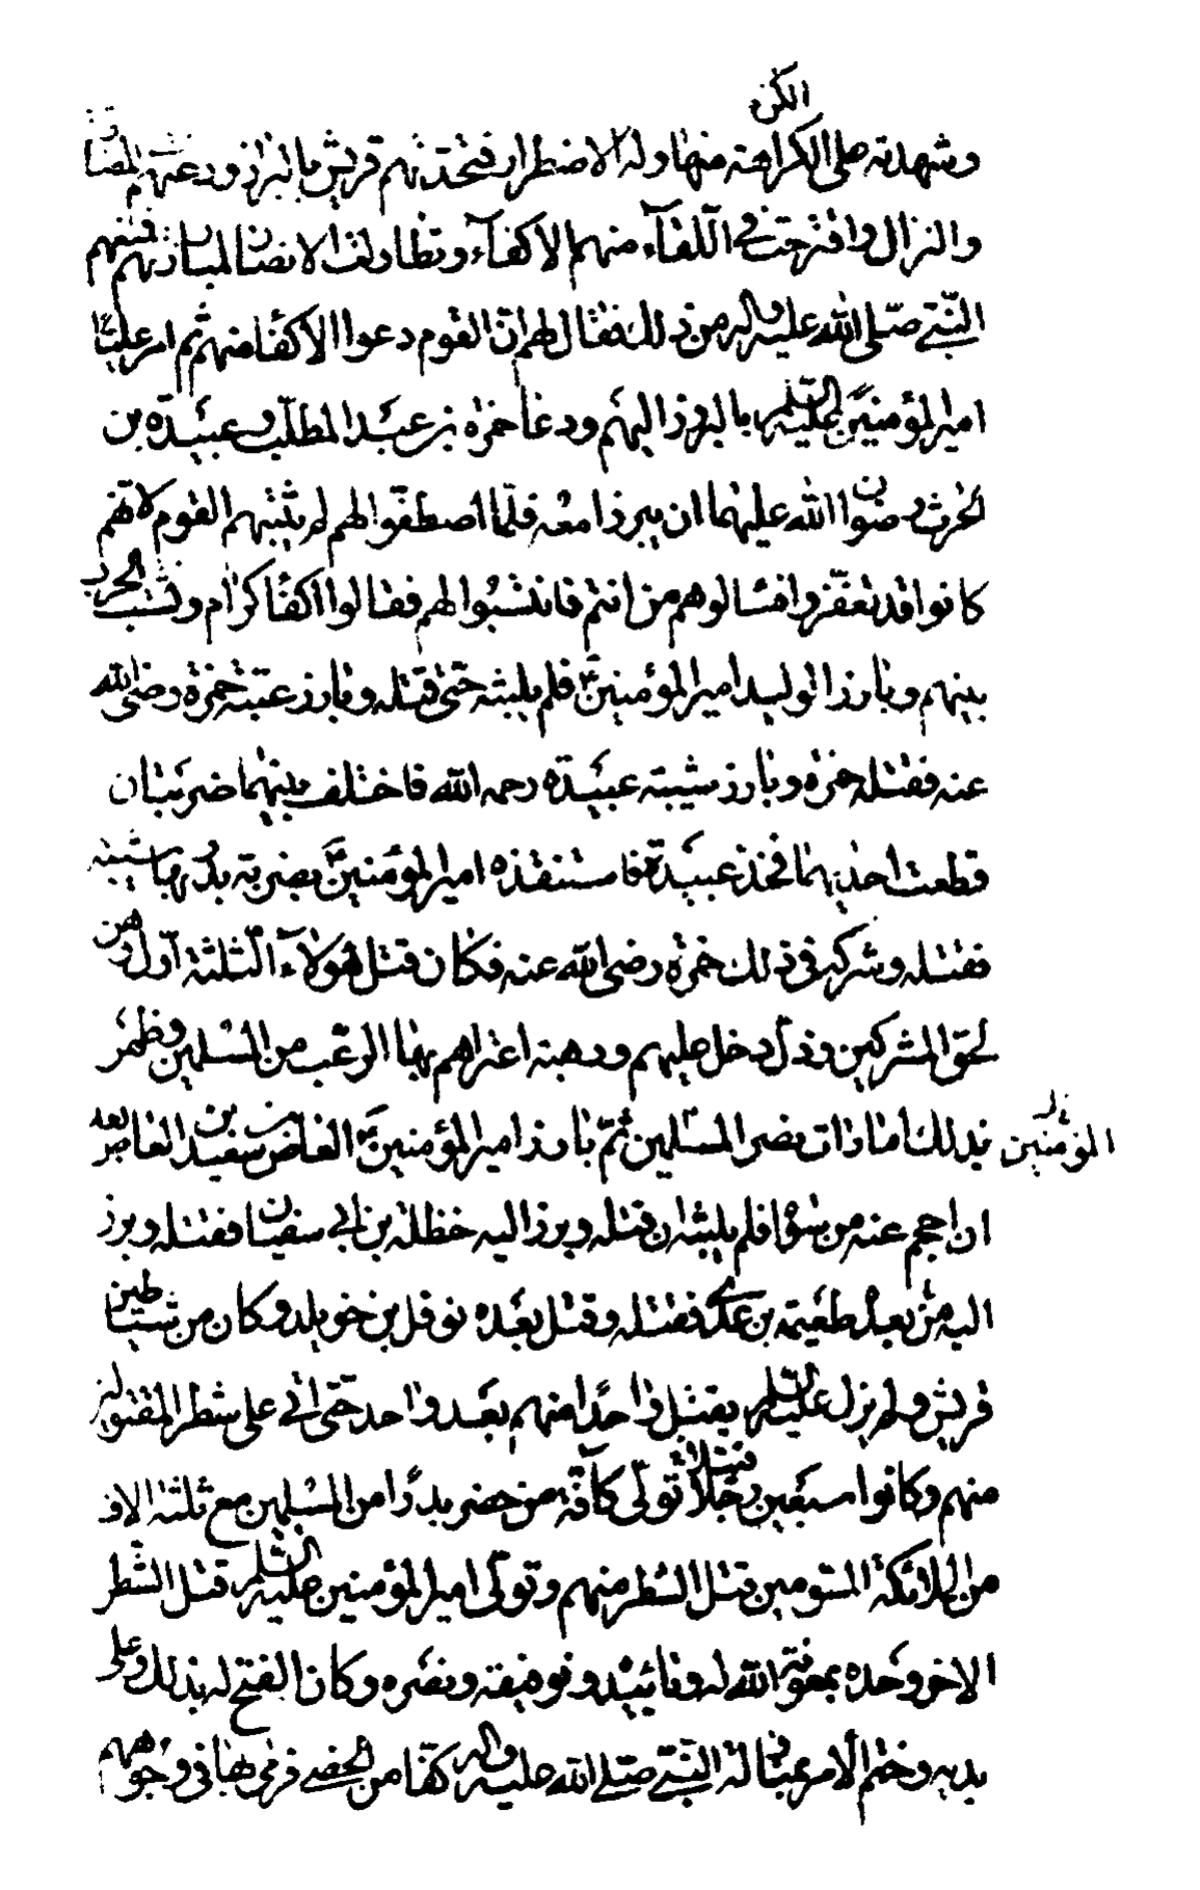 الكن
وشهدته على الكراهة منها وله الاضطرار فتحدتهم قريش بالبراز ودعتهم المصافة
والنزال واقترحت في اللقآء منهم الاكفآء وتطاولت الانصار لمبارزتهم فمنعهم
النبي صلى الله عليه واله من ذلك فقال لهم ان القوم دعوا الاكفا منهم ثم امر عليا
امير المؤمنين عليه السلم بالبروز اليهم ودعا حمزة بن عبد المطلب وعبيدة بن
الحرث رضوان الله عليهما ان يبرزا معه فلما اصطفوا لهم لم يثبتهم القوم لانهم
كانوا قد تغفروا فسالوهم من انتم فانتسبوا لهم فقالوا اكفا كرام ونشبت الحرب
بينهم وبارز الوليد امير المؤمنين فلم يلبثه حتى قتله وبارز عتبة حمزة رضي الله
عنه فقتله حمزة وبارز شيبة عبيدة رحمه الله فاختلف بينهما ضربتان
قطعت احديهما فخذ عبيدة فاستنقذه امير المؤمنين بضربة بدر بها شيبة
فقتله وشركه في ذلك حمزة رضي الله عنه فكان قتل هؤلآء الثلثة اول وهن
لحق المشركين وذل دخل عليهم ورهبة اعتراهم بها الرعب من المسلمين وظهر
بذلك امارات نصر المسلمين ثم بارز امير المؤمنين العاص بن سعيد بن العاص بعد
المؤمنين
ان احجم عنه من سواه فلم يلبثه ان قتله وبرز اليه حنظلة بن ابي سفيان فقتله وبرز
اليه من بعده طعيمة بن عدي فقتله وقتل بعده نوفل بن خويلد وكان من شياطين
قريش ولم يزل عليه السلم يقتل واحدا منهم بعد واحد حتى اتى على شطر المقتولين
منهم وكانوا سبعين رجلا قتيلا تولى كآفة من حضر بدرا من المسلمين مع ثلثة الاف
من الملائكة المسومين قتل الشطر منهم وتولى امير المؤمنين عليه السلم قتل الشطر
الاخر وحده بمعونة الله له وتاييده وتوفيقه ونصره وكان الفتح له بذلك وعلى
يديه وختم الامر بمناولة النبي صلى الله عليه واله كفا من الحصى فرمى بها في وجوههم